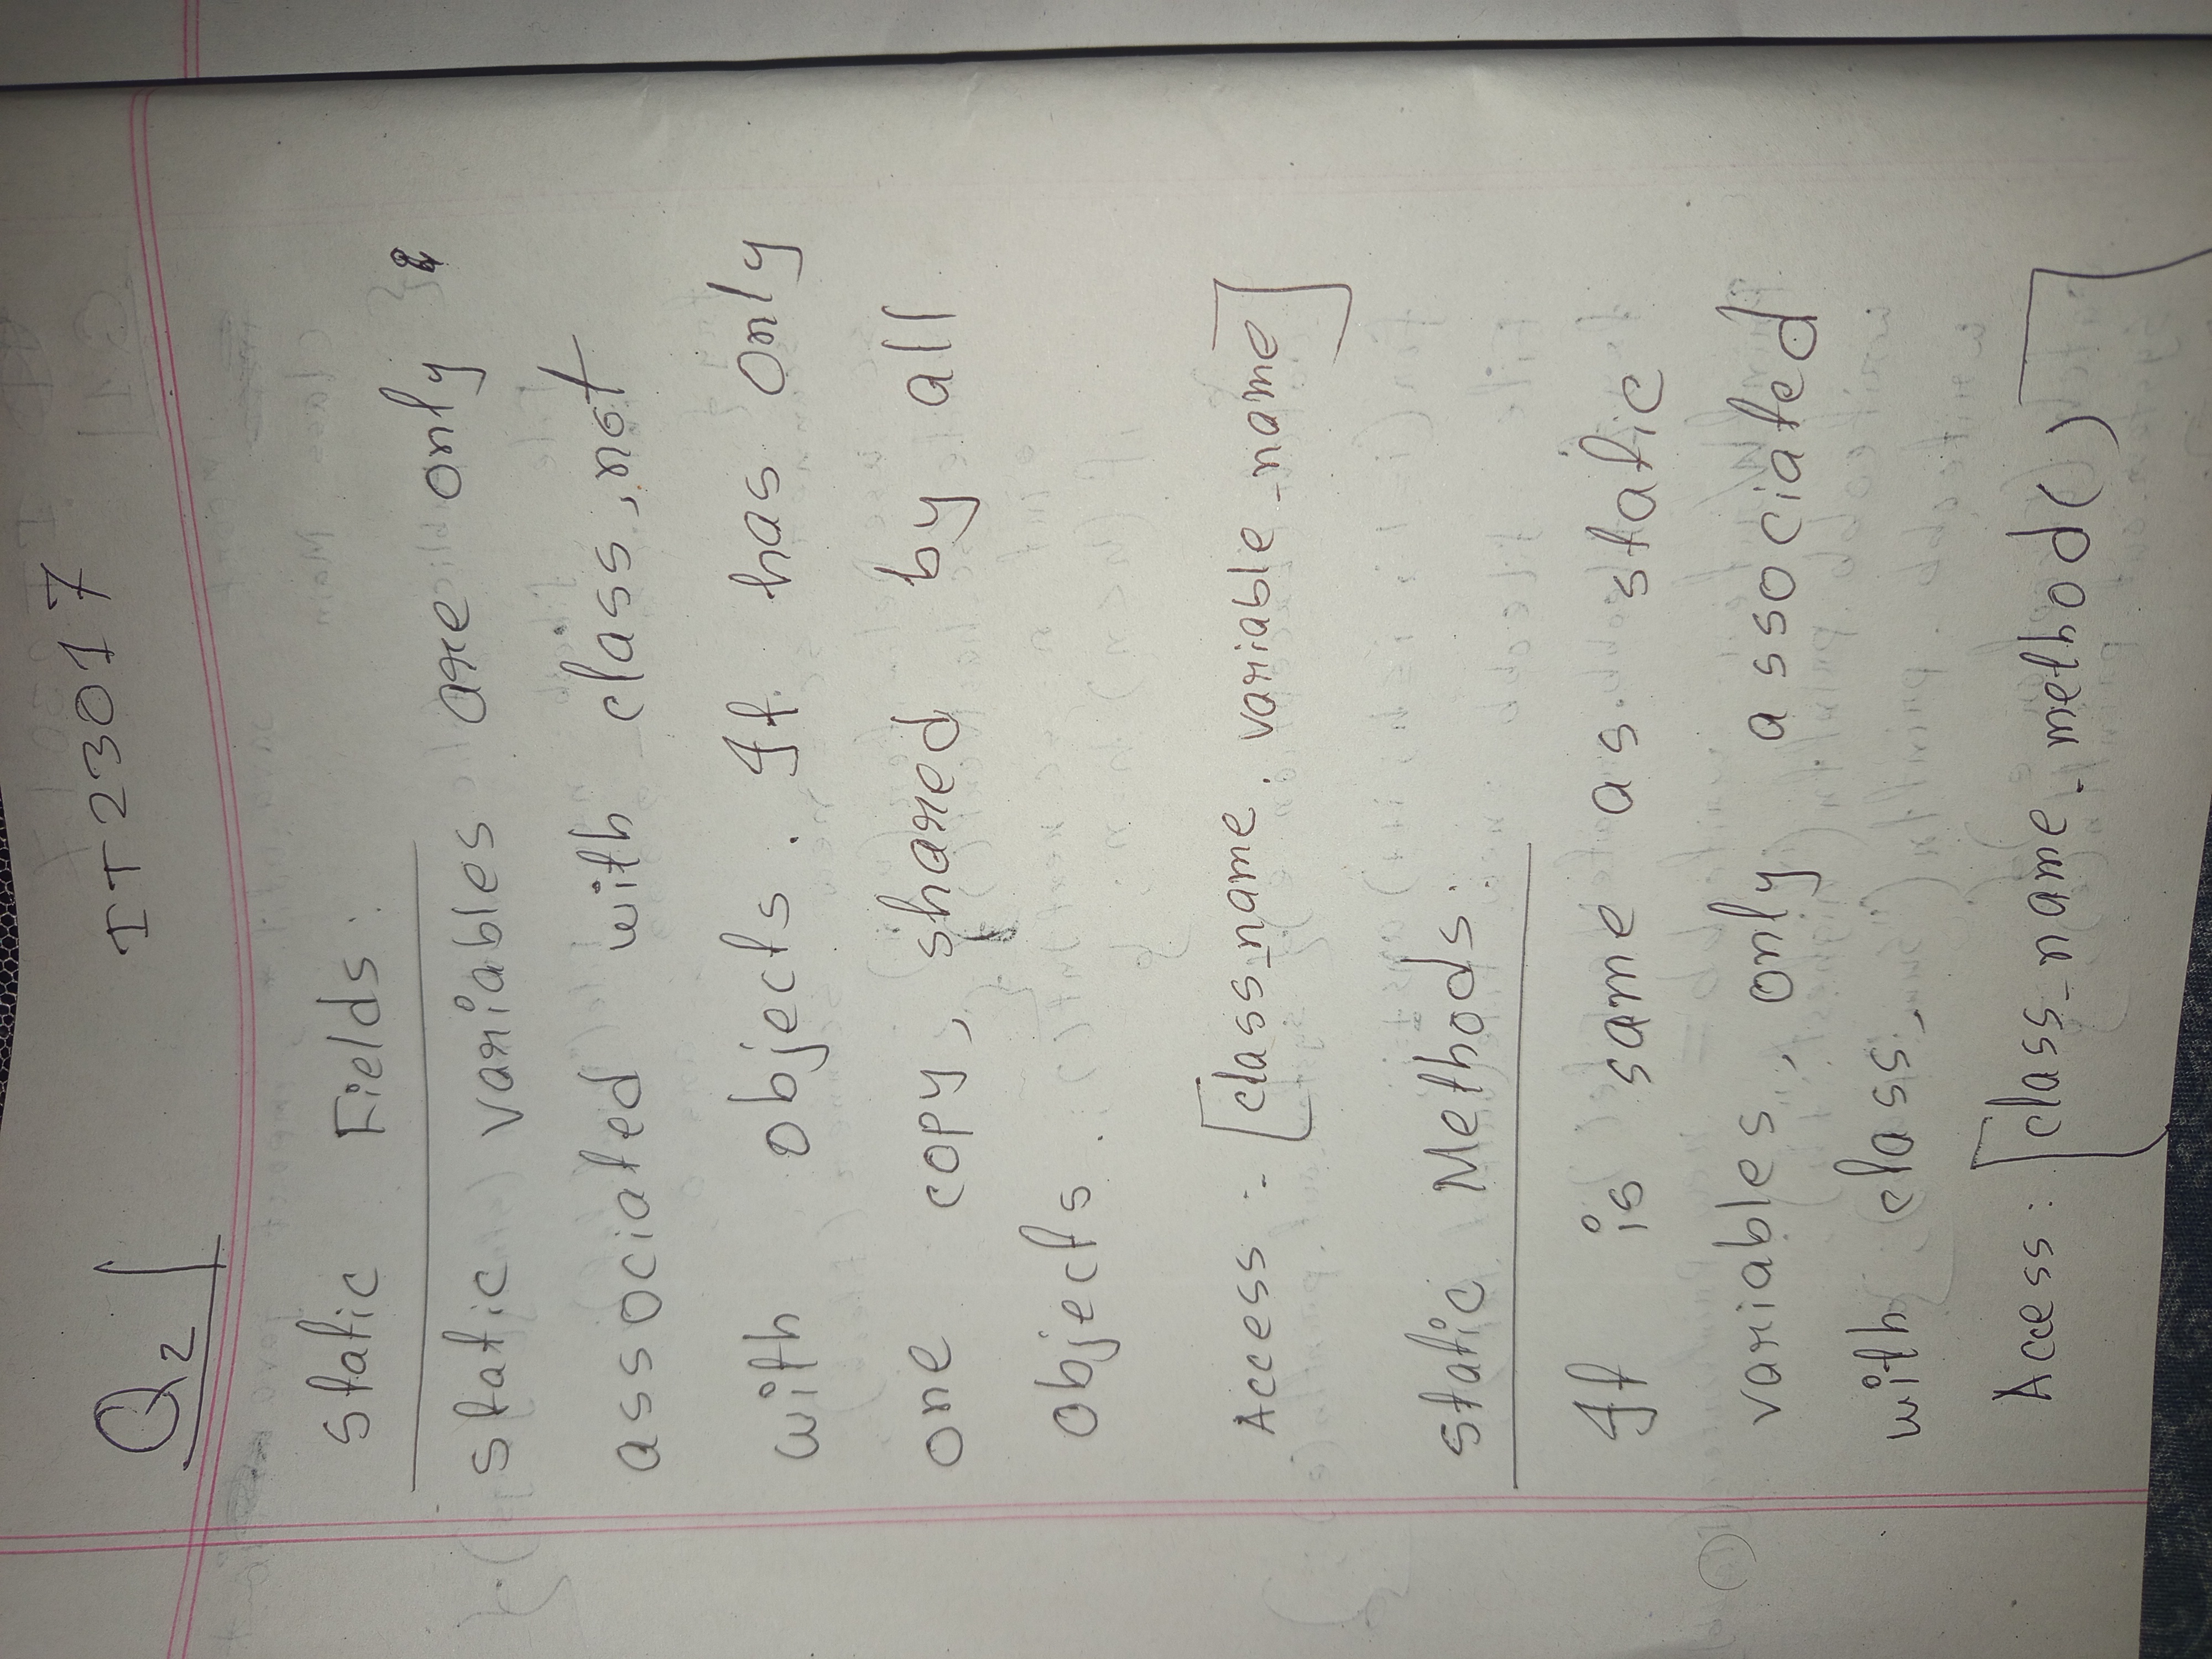 Q2
IT23017
Static Fields:
static variables are only
associated with class, not
with objects. It has only
one copy, shared by all
objects.
Access :- [class_name. variable_name]
static Methods:
It is same as static
variables, only associated
with class.
Access: [class_name.method()]